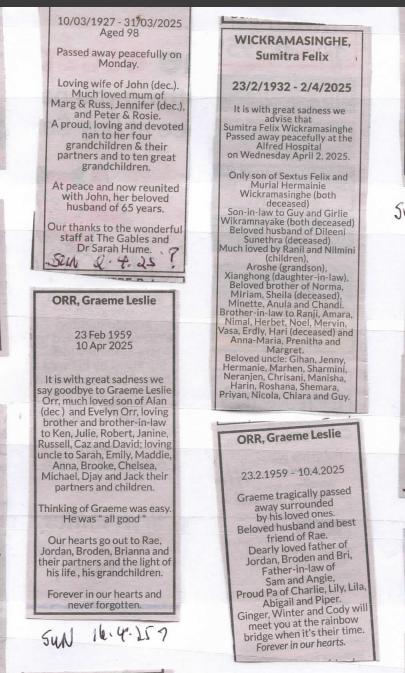 10/03/1927 - 31/03/2025
Aged 98
Passed away peacefully on
Monday.
Loving wife of John (dec.).
Much loved mum of
Marg & Russ, Jennifer (dec.),
and Peter & Rosie.
A proud, loving and devoted
nan to her four
grandchildren & their
partners and to ten great
grandchildren.
At peace and now reunited
with John, her beloved
husband of 65 years.
Our thanks to the wonderful
staff at The Gables and
Dr Sarah Hume.
SUN 2.4.25 ?
ORR, Graeme Leslie
23 Feb 1959
10 Apr 2025
It is with great sadness we
say goodbye to Graeme Leslie
Orr, much loved son of Alan
(dec ) and Evelyn Orr, loving
brother and brother-in-law
to Ken, Julie, Robert, Janine,
Russell, Caz and David; loving
uncle to Sarah, Emily, Maddie,
Anna, Brooke, Chelsea,
Michael, Djay and Jack their
partners and children.
Thinking of Graeme was easy.
He was " all good "
Our hearts go out to Rae,
Jordan, Broden, Brianna and
their partners and the light of
his life , his grandchildren.
Forever in our hearts and
never forgotten.
SUN 16.4.25 ?
WICKRAMASINGHE,
Sumitra Felix
23/2/1932 - 2/4/2025
It is with great sadness we
advise that
Sumitra Felix Wickramasinghe
Passed away peacefully at the
Alfred Hospital
on Wednesday April 2, 2025.
Only son of Sextus Felix and
Murial Hermainie
Wickramasinghe (both
deceased)
Son-in-law to Guy and Girlie
Wikramnayake (both deceased)
Beloved husband of Dileeni,
Sunethra (deceased)
Much loved by Ranil and Nilmini
(children),
Aroshe (grandson),
Xianghong (daughter-in-law).
Beloved brother of Norma,
Miriam, Sheila (deceased),
Minette, Anula and Chandi.
Brother-in-law to Ranji, Amara,
Nimal, Herbet, Noel, Mervin,
Vasa, Erdly, Hari (deceased) and
Anna-Maria, Prenitha and
Margret.
Beloved uncle: Gihan, Jenny,
Hermanie, Marhen, Sharmini,
Neranjen, Chrisani, Manisha,
Harin, Roshana, Shemara,
Priyan, Nicola, Chiara and Guy.
ORR, Graeme Leslie
23.2.1959 - 10.4.2025
Graeme tragically passed
away surrounded
by his loved ones.
Beloved husband and best
friend of Rae.
Dearly loved father of
Jordan, Broden and Bri,
Father-in-law of
Sam and Angie,
Proud Pa of Charlie, Lily, Lila,
Abigail and Piper.
Ginger, Winter and Cody will
meet you at the rainbow
bridge when it's their time.
Forever in our hearts.